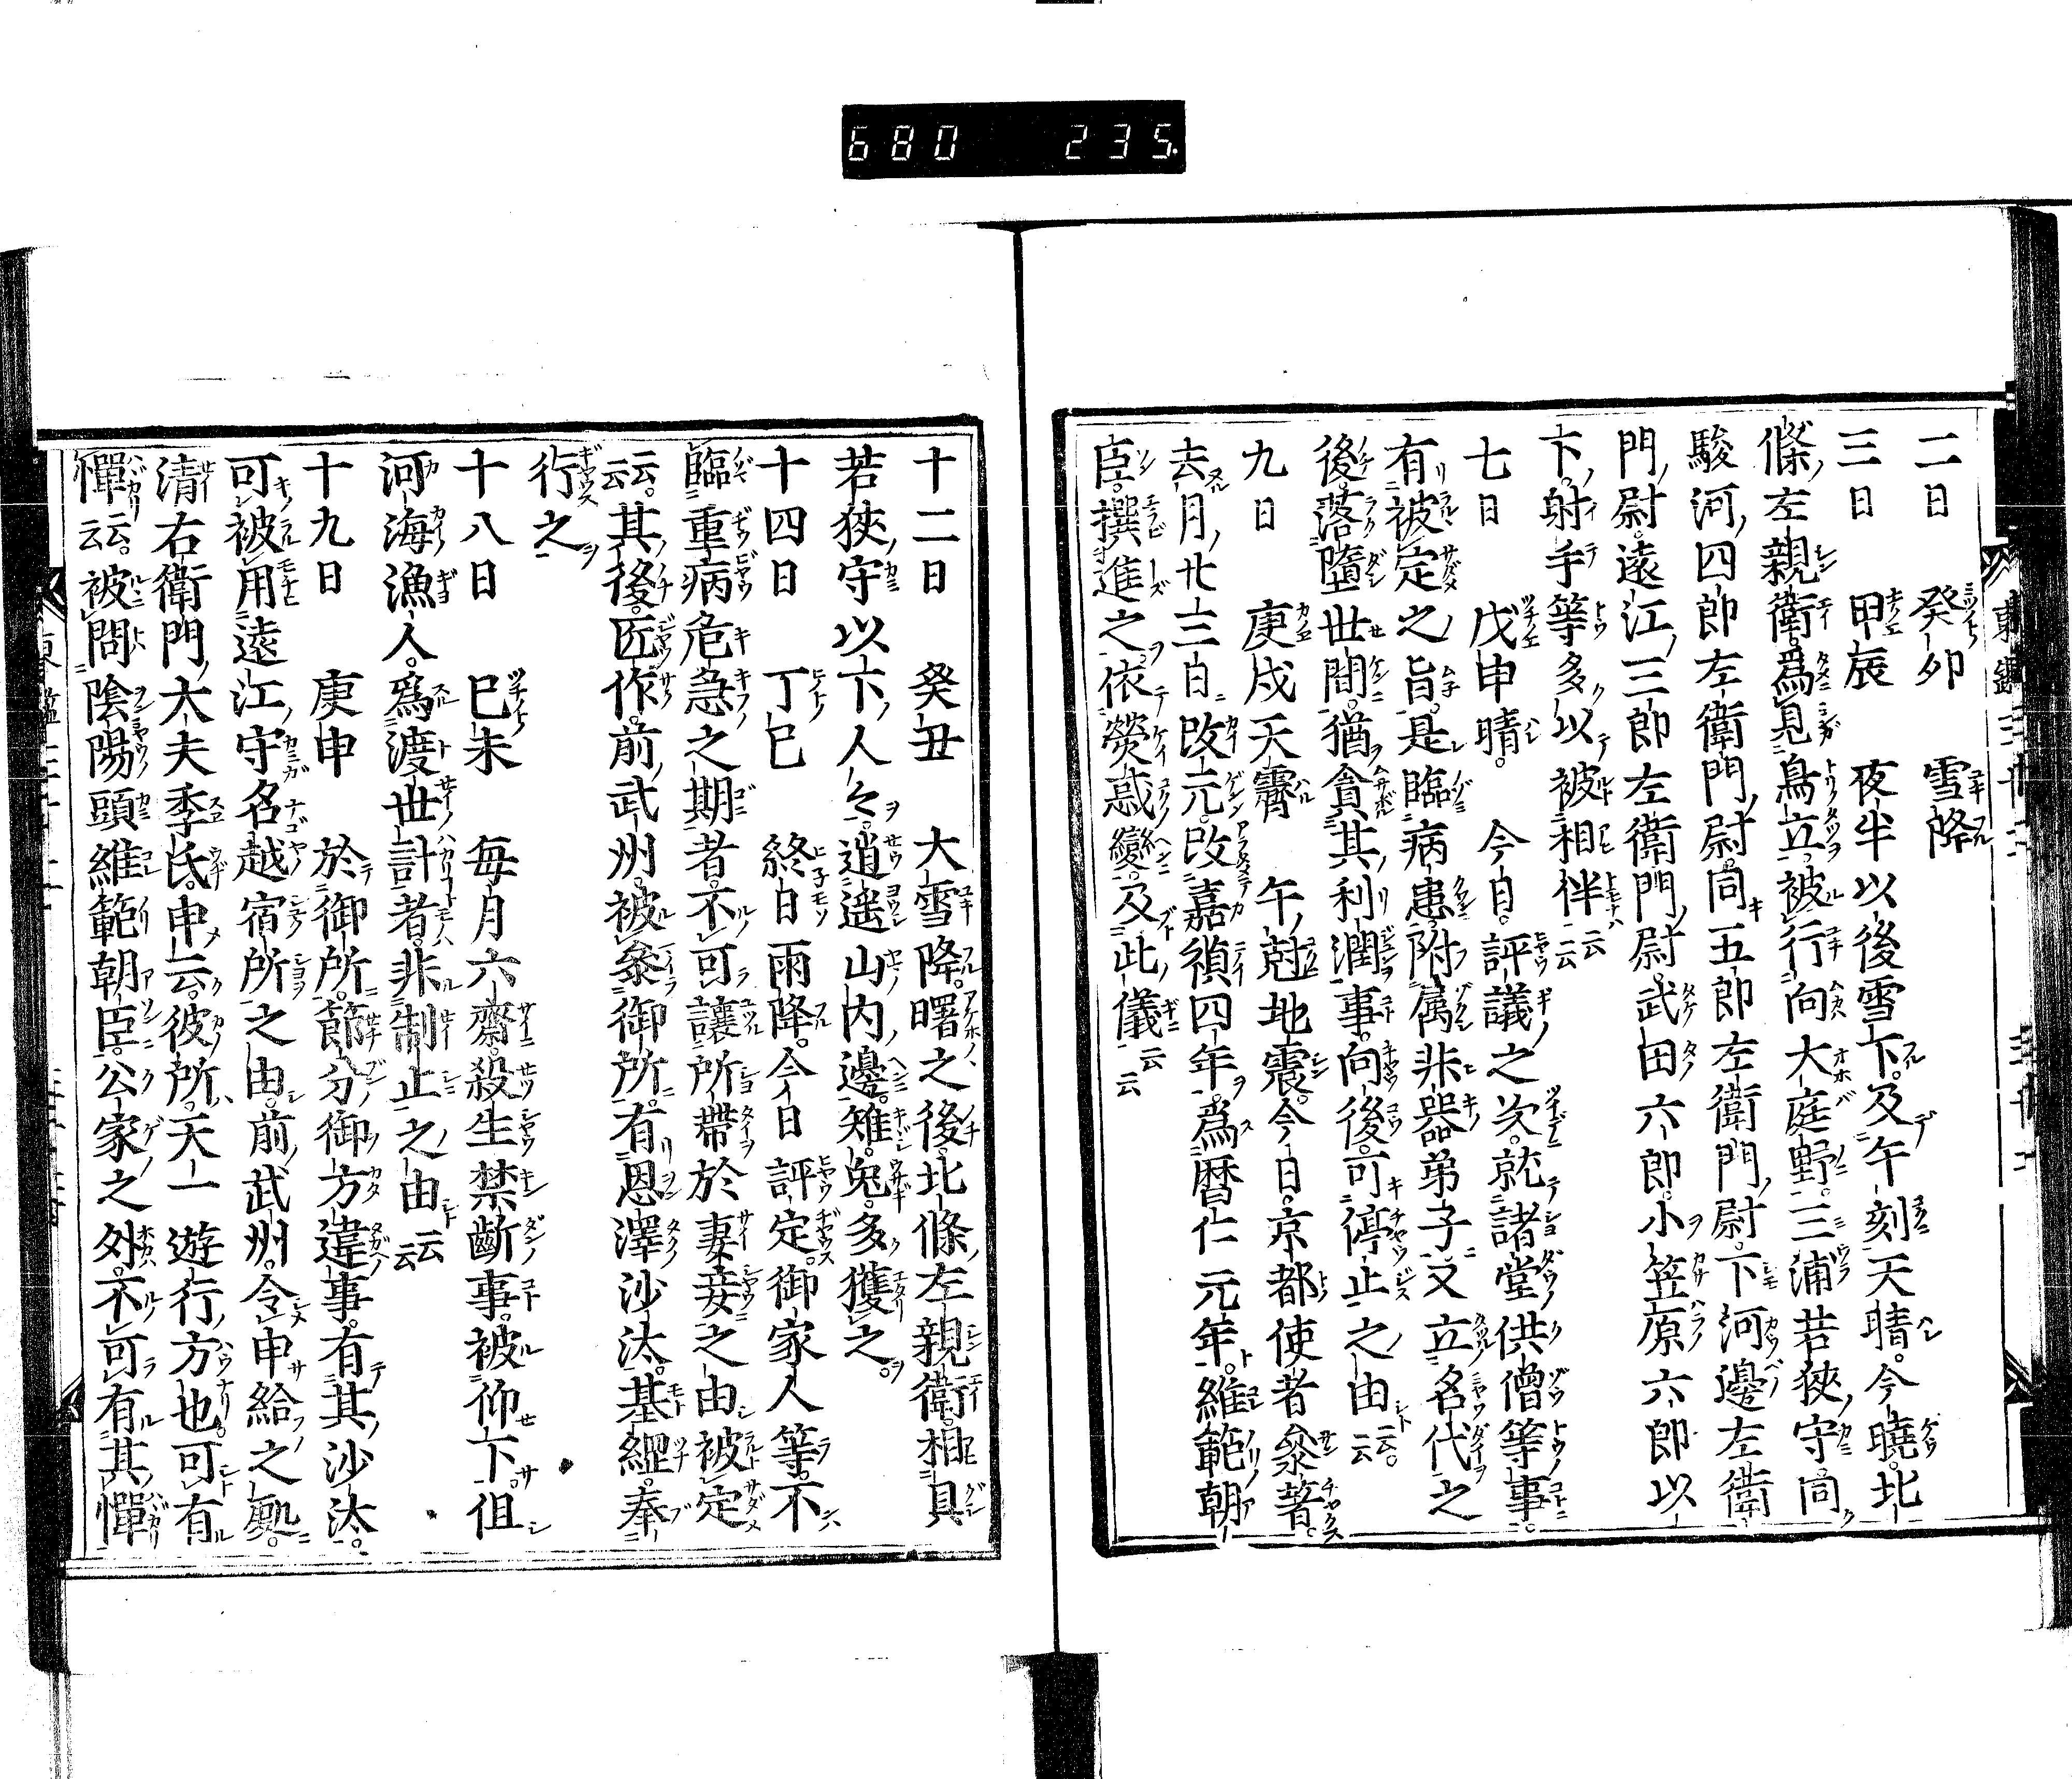 680 235.
二日 癸卯 雪降
三日 甲辰 夜半以後雪下。及午刻天晴。今曉。北
條左親衛。爲見鳥立。被行向大庭野。三浦若狹守。同
駿河四郎左衛門尉。同五郎左衛門尉。下河邊左衛
門尉。遠江三郎左衛門尉。武田六郎。小笠原六郎以
下。射手等多以被相伴云云
七日 戊申晴。 今日。評議之次。就諸堂供僧等事。
有被定之旨。是臨病患。附属非器弟子。又立名代之
後。落墮世間。猶貪其利潤事。向後。可停止之由云云。
九日 庚戌天霽 午尅地震。今日。京都使者參著。
去月廿三日改元。改嘉禎四年。爲暦仁元年。維範朝
臣。撰進之。依熒惑變。及此儀云云
十二日 癸丑 大雪降。曙之後。北條左親衛。相具
若狹守以下人々。逍遥山内邊。雉。兔。多獲之。
十四日 丁巳 終日雨降。今日評定。御家人等。不
臨重病危急之期者。不可讓所帶於妻妾之由被定
云云。其後。匠作。前武州。被參御所。有恩澤沙汰。基綱。奉
行之
十八日 巳未 毎月六齋。殺生禁斷事。被仰下。但
河海漁人。爲渡世計者。非制止之由云云
十九日 庚申 於御所。節分御方違事。有其沙汰。
可被用遠江守名越宿所之由。前武州。令申給之處。
清右衛門大夫季氏。申云。彼所。天一遊行方也。可有
憚云云。被問陰陽頭維範朝臣。公家之外。不可有其憚